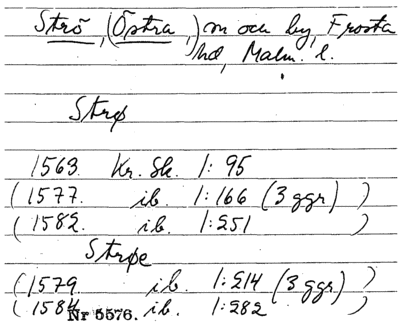 Strö, (Östra,) sn och by, Frosta
hd, Malm. l.
Strø
1563. Kr. Sk. 1: 95
(1577. ib. 1:166 (3 ggr) )
(1582. ib. 1:251 )
Strøe
(1579. ib. 1:214 (3 ggr) )
(1584. ib. 1:282 )
Nr 5576.